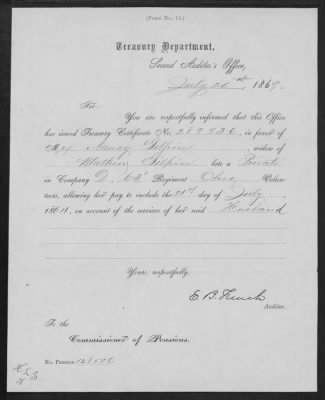 (Form No. 10.)
Treasury Department,
Second Auditor's Office,
July 26th, 1869.
Sir:
You are respectfully informed that this Office
has issued Treasury Certificate No. 289936, in favor of
Mrs. Nancy Gilpin, widow of
Mathew Gilpin late a Private
in Company D 63d Regiment Ohio Volun-
teers, allowing her pay to include the 21st day of July
1864, on account of the services of her said Husband
Yours, respectfully,
E. B. French
Auditor.
To the
Commissioner of Pensions.
No. Pension